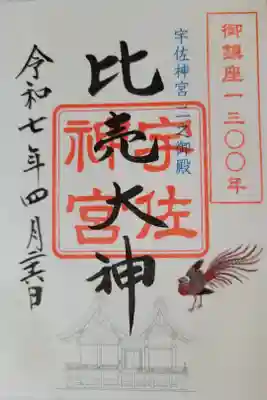 御鎮座一三〇〇年
宇佐神宮 二之御殿
宇佐
神宮
比売大神
令和七年四月二六日